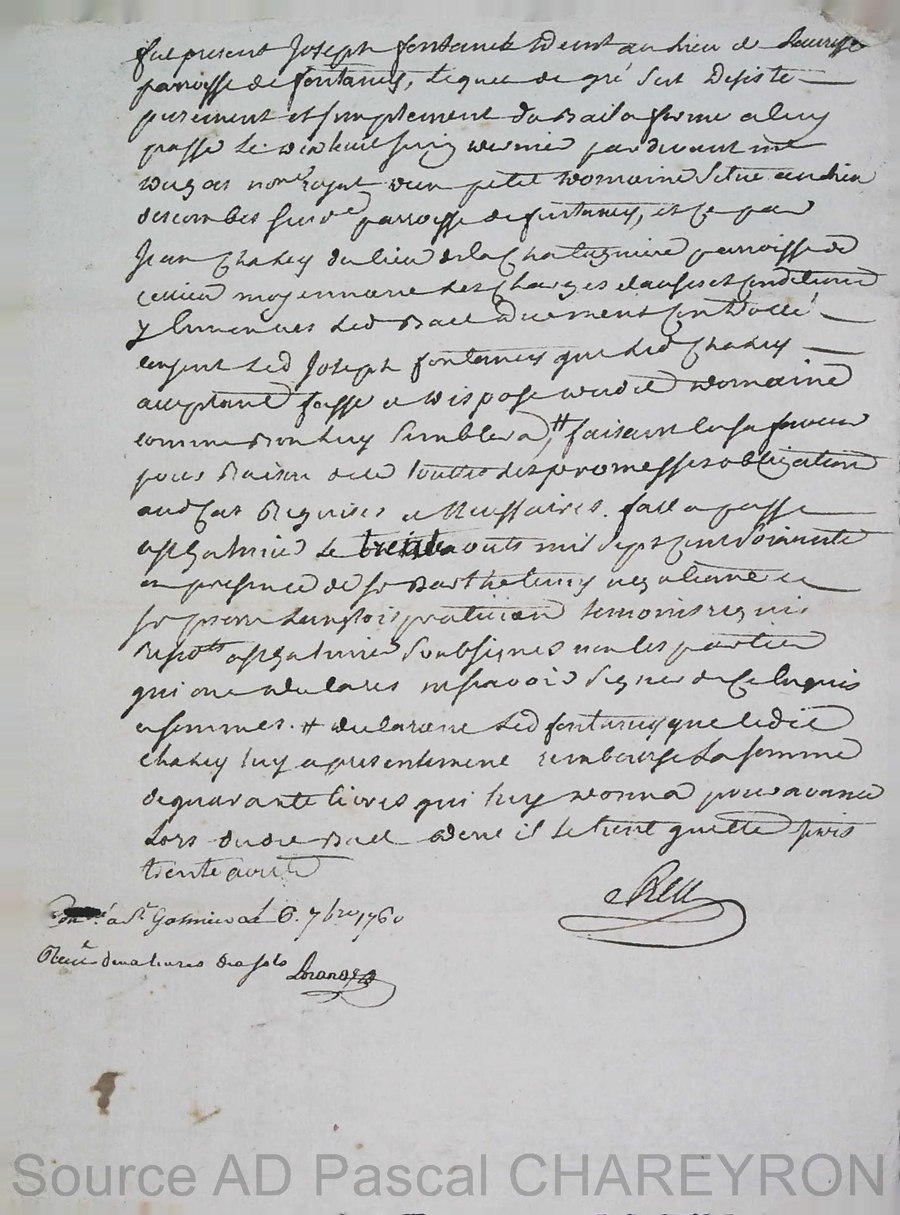 fut present Joseph fontaneis demt au lieu de
parroisse de fontaneis, lequel de gré sest desisté
purement et simplement du Bail a ferme a luy
passé le vinthuit juin dernier pardevant me
dugas nore royal dun petit domaine situé au lieu
des combes susde parroisse de fontaneis, et ce par
Jean Chaley du lieu de la Chatagniere parroisse de
cellieu moyennant les charges clauses et conditions
y enoncées led Bail duement controllé
consent led Joseph fontaneis que led Chaley
acceptant fasse et dispose dudit domaine
comme Bon luy semblera, # faisant en sa faveur
pour Raison de ce touttes les promesses obligation
aud cas Requises et necessaires. fait et passé
a st galmier le trente aouts mil sept cent soixante
en presence de sr Barthelemy et
sr pierre Langlois praticien temoins requis
a st galmier soubsignes non les parties
qui ont declarés ne scavoir signer de ce enquis
et sommes. # declarant led fontaneis que ledit
Chaley luy a presentement remboursé la somme
de quarante livres qui luy donna pour avance
lors dudit Bail dont il le tient quitte
trente aout
Conlé a St Galmier le 6. 7bre 1760
Receu douze sols
Source AD Pascal CHAREYRON